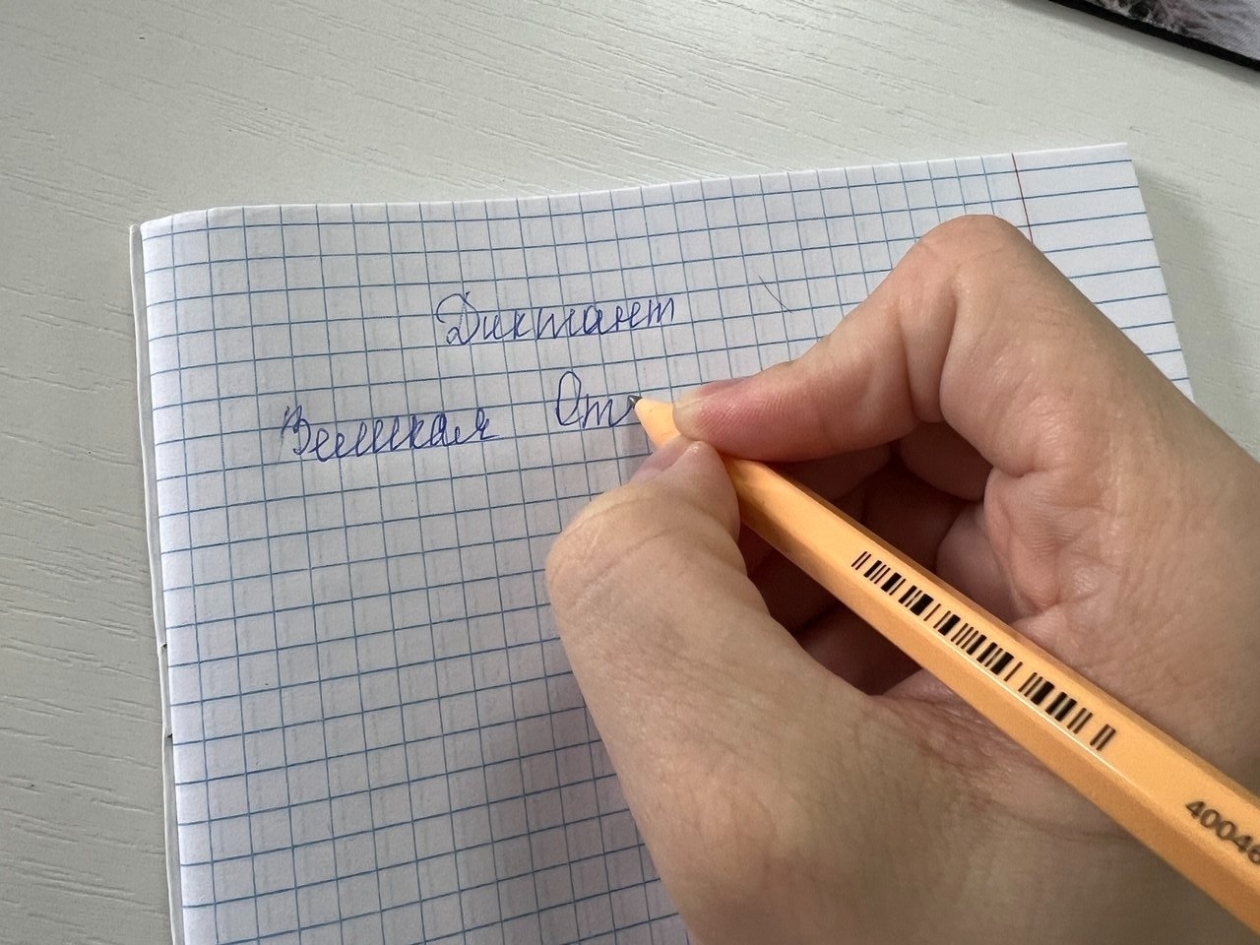 Диктант
Великая От
40046